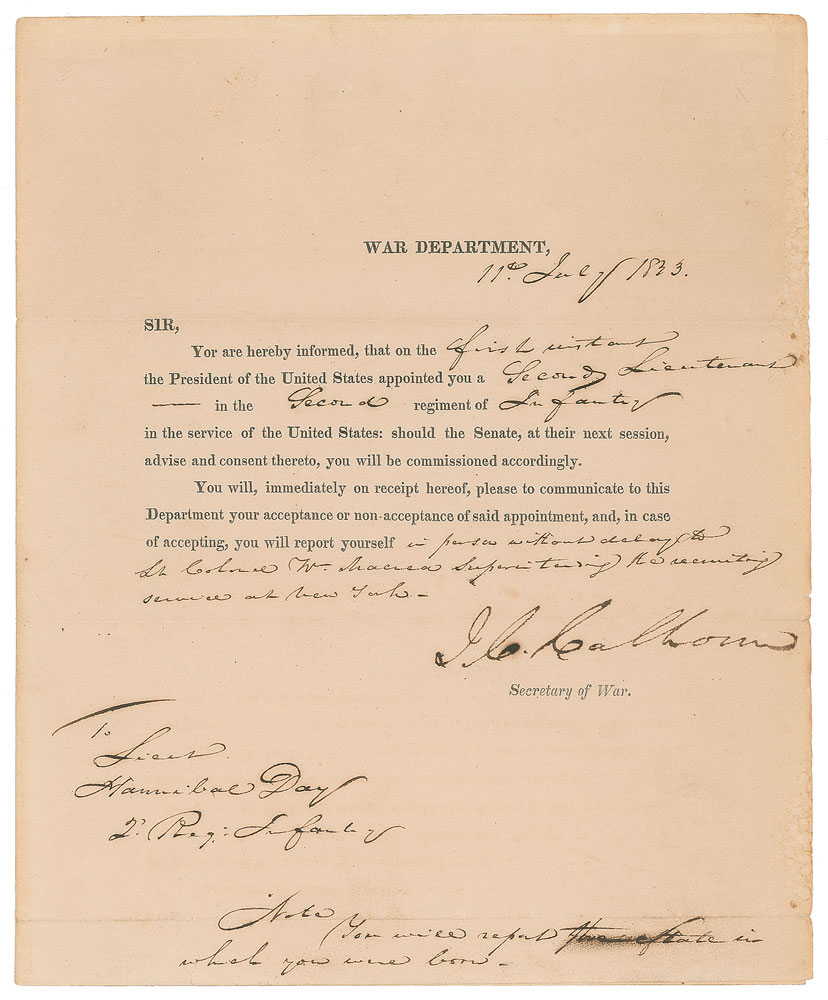 WAR DEPARTMENT,
11th July 1823.
SIR,
You are hereby informed, that on the first instant
the President of the United States appointed you a Second Lieutenant
— in the Second regiment of Infantry
in the service of the United States: should the Senate, at their next session,
advise and consent thereto, you will be commissioned accordingly.
You will, immediately on receipt hereof, please to communicate to this
Department your acceptance or non-acceptance of said appointment, and, in case
of accepting, you will report yourself in person without delay to
Lt Colonel Wm. Macrea Superintending the recruiting
service at New York –
J. C. Calhoun
Secretary of War.
To
Lieut
Hannibal Day
2d. Reg: Infantry
Note
You will report state in
which you were born –